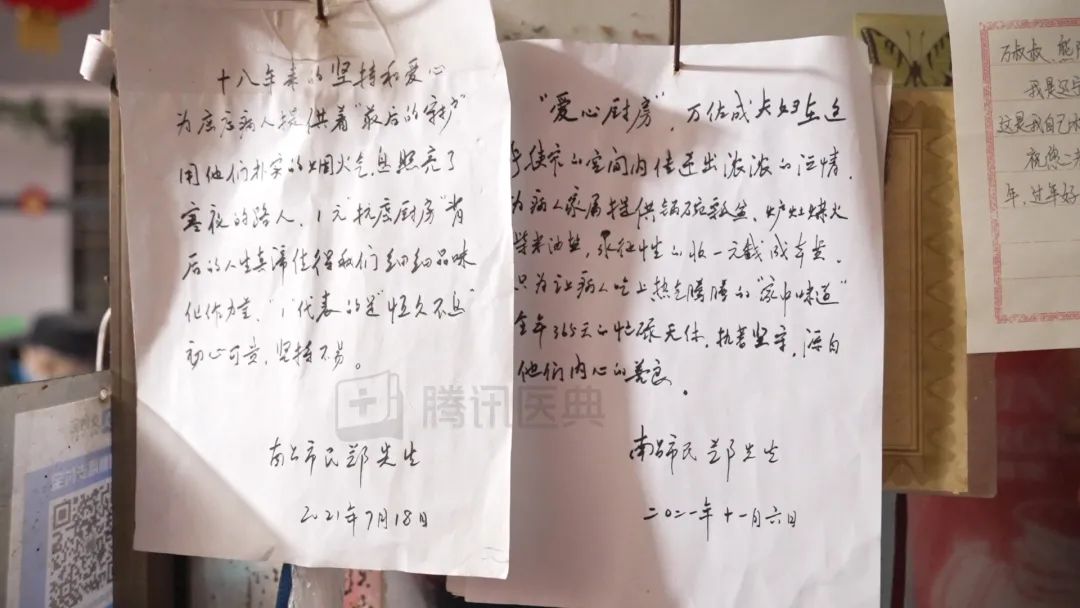 十八年来的坚持和爱心
为癌症病人提供着"最后的守护"
用他们朴实的烟火气息照亮了
寒夜的路人，1元"抗癌厨房"背
后的人生真谛值得我们细细品味
他作为星，"1"代表的是"恒久不息"
初心可贵，坚持不易。
南昌市民郑先生
2021年7月18日
"爱心厨房"，万佐成夫妇在这
狭窄的空间内传递出浓浓的温情，
为病人家属提供锅碗瓢盆、炉灶煤火
柴米油盐，象征性的收一元钱成本费，
只为让病人吃上热气腾腾的"家中味道"
全年365天的忙碌无休，执着坚守，源自
他们内心的善良。
南昌市民郑先生
二〇二一年十一月六日
万叔叔，熊
我是
这是我自己
祝您
年，过年好
腾讯医典